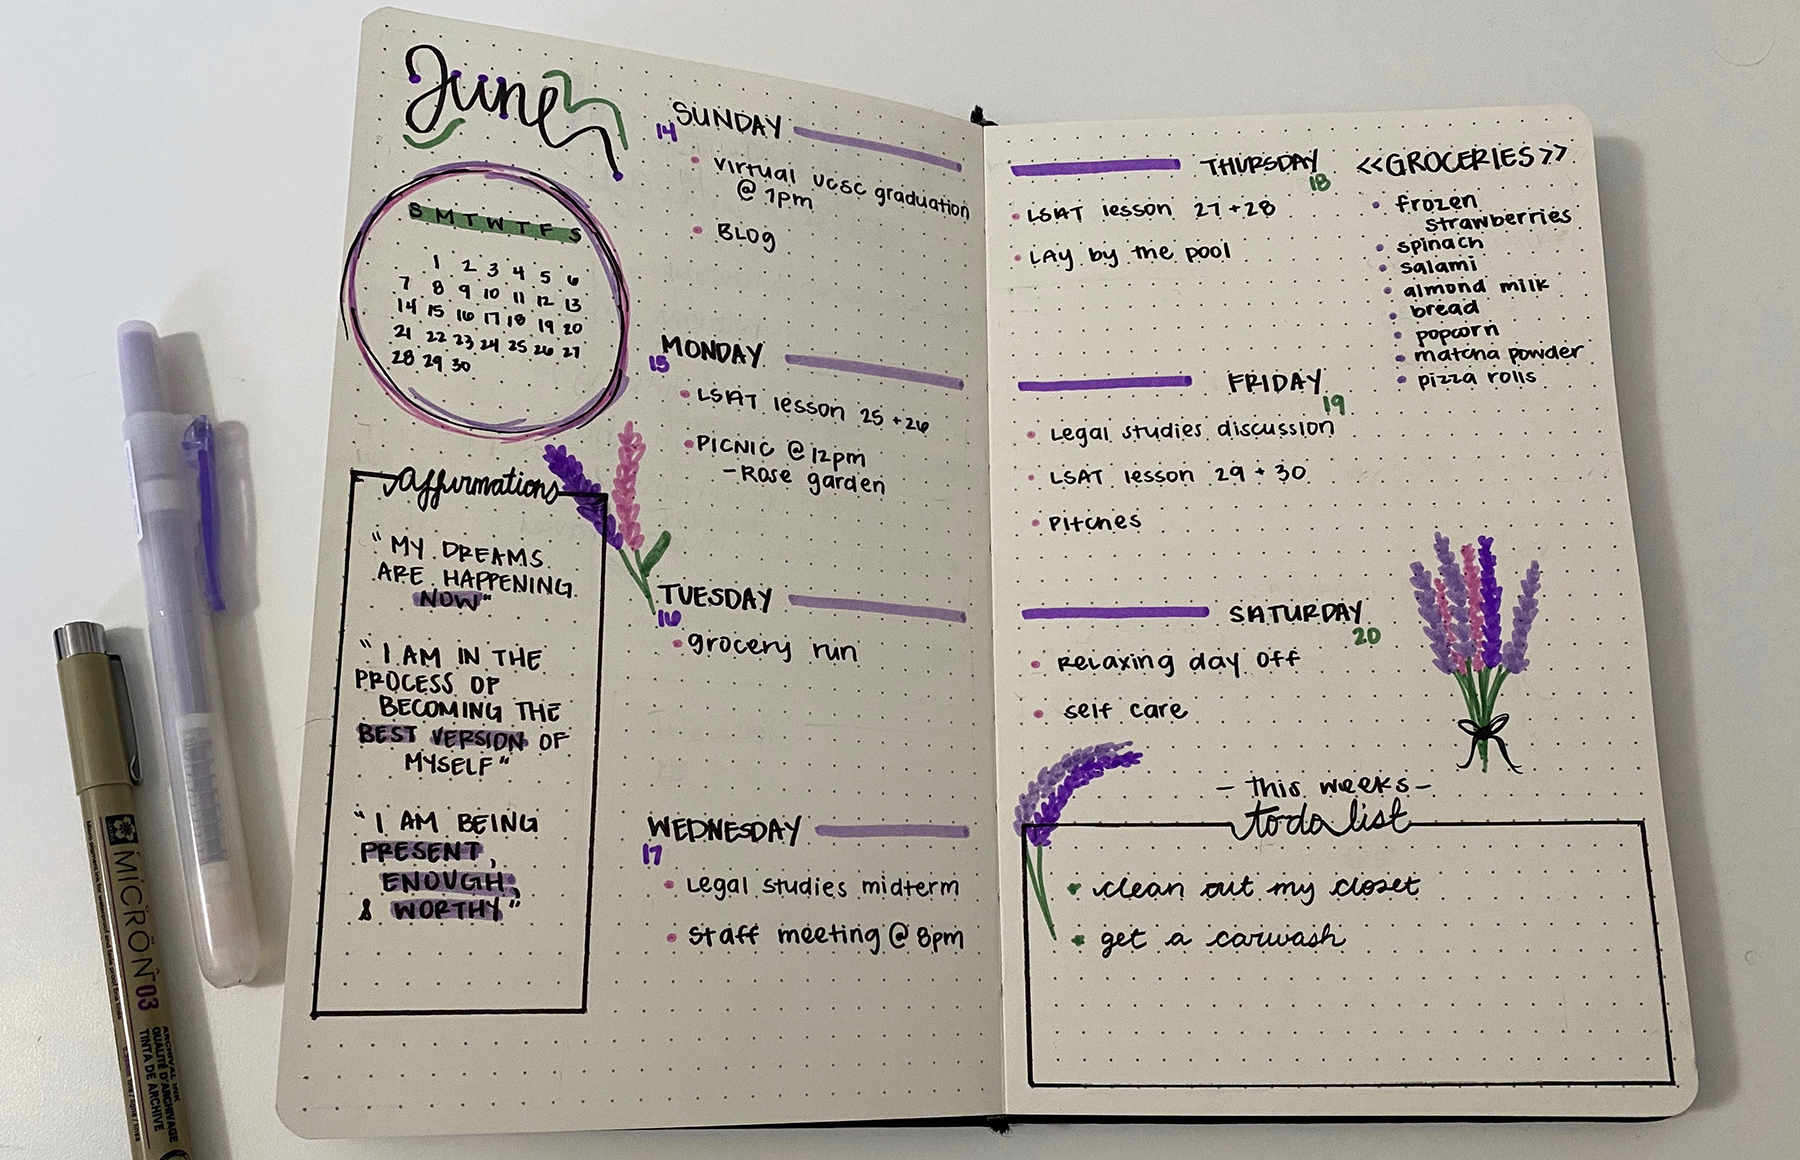 June
S M T W T F S
1 2 3 4 5 6
7 8 9 10 11 12 13
14 15 16 17 18 19 20
21 22 23 24 25 26 27
28 29 30
affirmations
"MY DREAMS
ARE HAPPENING
NOW"
"I AM IN THE
PROCESS OF
BECOMING THE
BEST VERSION OF
MYSELF"
"I AM BEING
PRESENT,
ENOUGH,
& WORTHY"
SUNDAY
14
virtual ucsc graduation
@ 1pm
BLOG
MONDAY
15
LSAT lesson 25 + 26
PICNIC @ 12pm
- Rose garden
TUESDAY
16
grocery run
WEDNESDAY
17
Legal studies midterm
Staff meeting @ 8pm
THURSDAY
18
LSAT lesson 27 + 28
LAY by the pool
FRIDAY
19
Legal studies discussion
LSAT lesson 29 + 30
Pitches
SATURDAY
20
Relaxing day off
self care
<<GROCERIES>>
frozen
strawberries
spinach
salami
almond milk
bread
popcorn
matcha powder
pizza rolls
- This weeks -
to do list
clean out my closet
get a carwash
MICRON 03
ARCHIVAL INK
QUALITÉ D'ARCHIVAGE
TINTA DE ARCHIVE